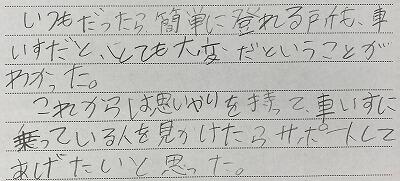 いつもだったら簡単に登れる所も、車
いすだと、とても大変だということが
わかった。
これからは思いやりを持って、車いすに
乗っている人を見かけたらサポートして
あげたいと思った。